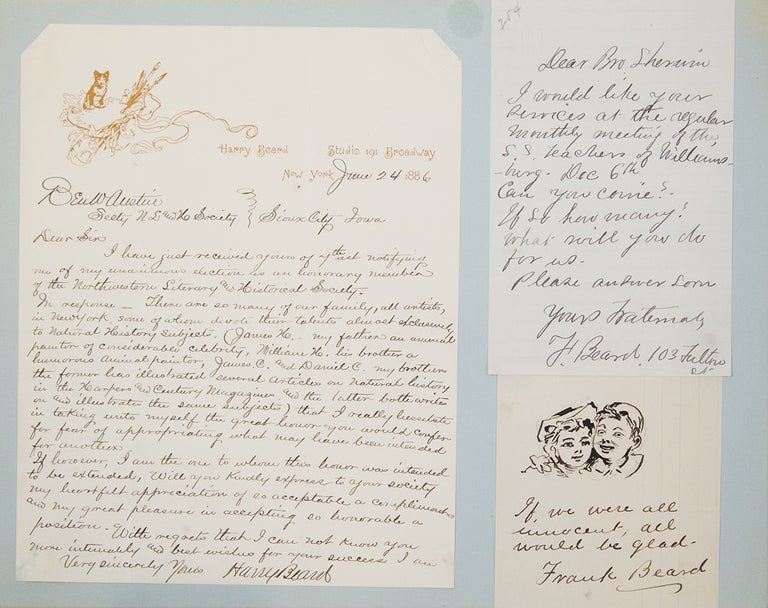 Harry Beard Studio 191 Broadway
New York June 24 1886
Ben W Austin
Secty N L and H Society } Sioux City, Iowa
Dear Sir
I have just received yours of 7th inst notifying
me of my unanimous election as an honorary member
of the Northwestern Literary and Historical Society.
In response — There are so many of our family, all artists,
in New York some of whom devote their talents almost exclusively
to Natural History subjects. (James H. my father an animal
painter of considerable celebrity, William H. his brother a
humorous animal painter, James C. and Daniel C. my brothers
the former has illustrated several Articles on Natural history
in the Harpers and Century Magazines and the latter both writes
on and illustrates the same subjects) that I really hesitate
in taking unto myself the great honor you would confer
for fear of appropriating what may have been intended
for another.
If however, I am the one to whom this honor was intended
to be extended, Will you kindly express to your society
my heartfelt appreciation of so acceptable a compliment
and my great pleasure in accepting so honorable a
position. With regrets that I can not know you
more intimately and best wishes for your success I am
Very sincerely Yours Harry Beard
204
Dear Bro Sherwin
I would like your
services at the regular
monthly meeting of the
S. S. teachers of Williams-
-burg. Dec 6th
Can you come?
If so how many?
What will you do
for us.
Please answer soon
Yours Fraternally
F. Beard, 103 Fulton
St
If we were all
innocent, all
would be glad-
Frank Beard